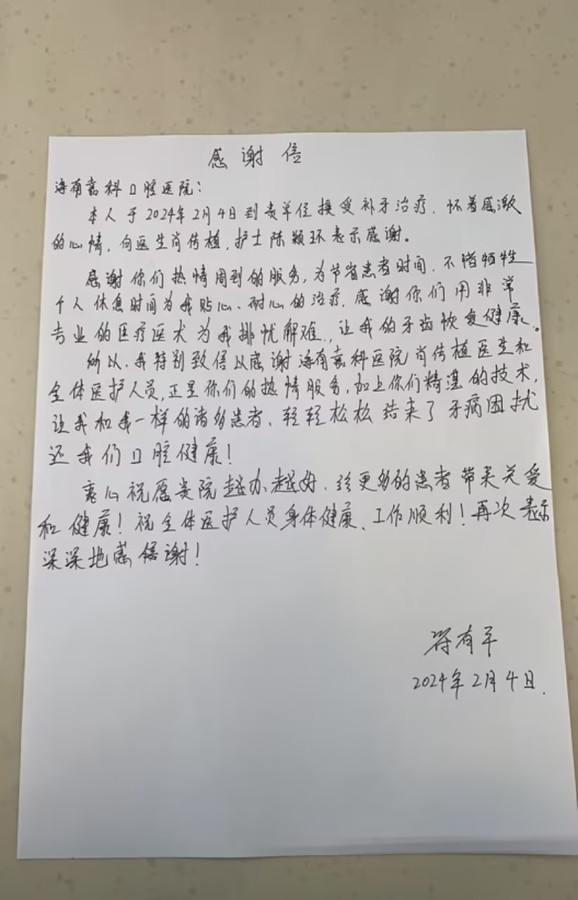 感谢信
海南嘉科口腔医院：
本人于2024年2月4日到贵单位接受补牙治疗，怀着感激
的心情，向医生肖传植，护士陈颖环表示感谢。
感谢你们热情周到的服务，为节省患者时间，不惜牺牲
个人休息时间为我贴心、耐心的治疗，感谢你们用非常
专业的医疗医术为我排忧解难，让我的牙齿恢复健康。
所以，我特别致信以感谢海南嘉科医院肖传植医生和
全体医护人员，正是你们的热情服务，加上你们精湛的技术，
让我和我一样的诸多患者，轻轻松松结束了牙病困扰
还我们口腔健康！
衷心祝愿贵院越办越好，给更多的患者带来关爱
和健康！祝全体医护人员身体健康、工作顺利！再次表示
深深地感谢！
符有平
2024年2月4日.